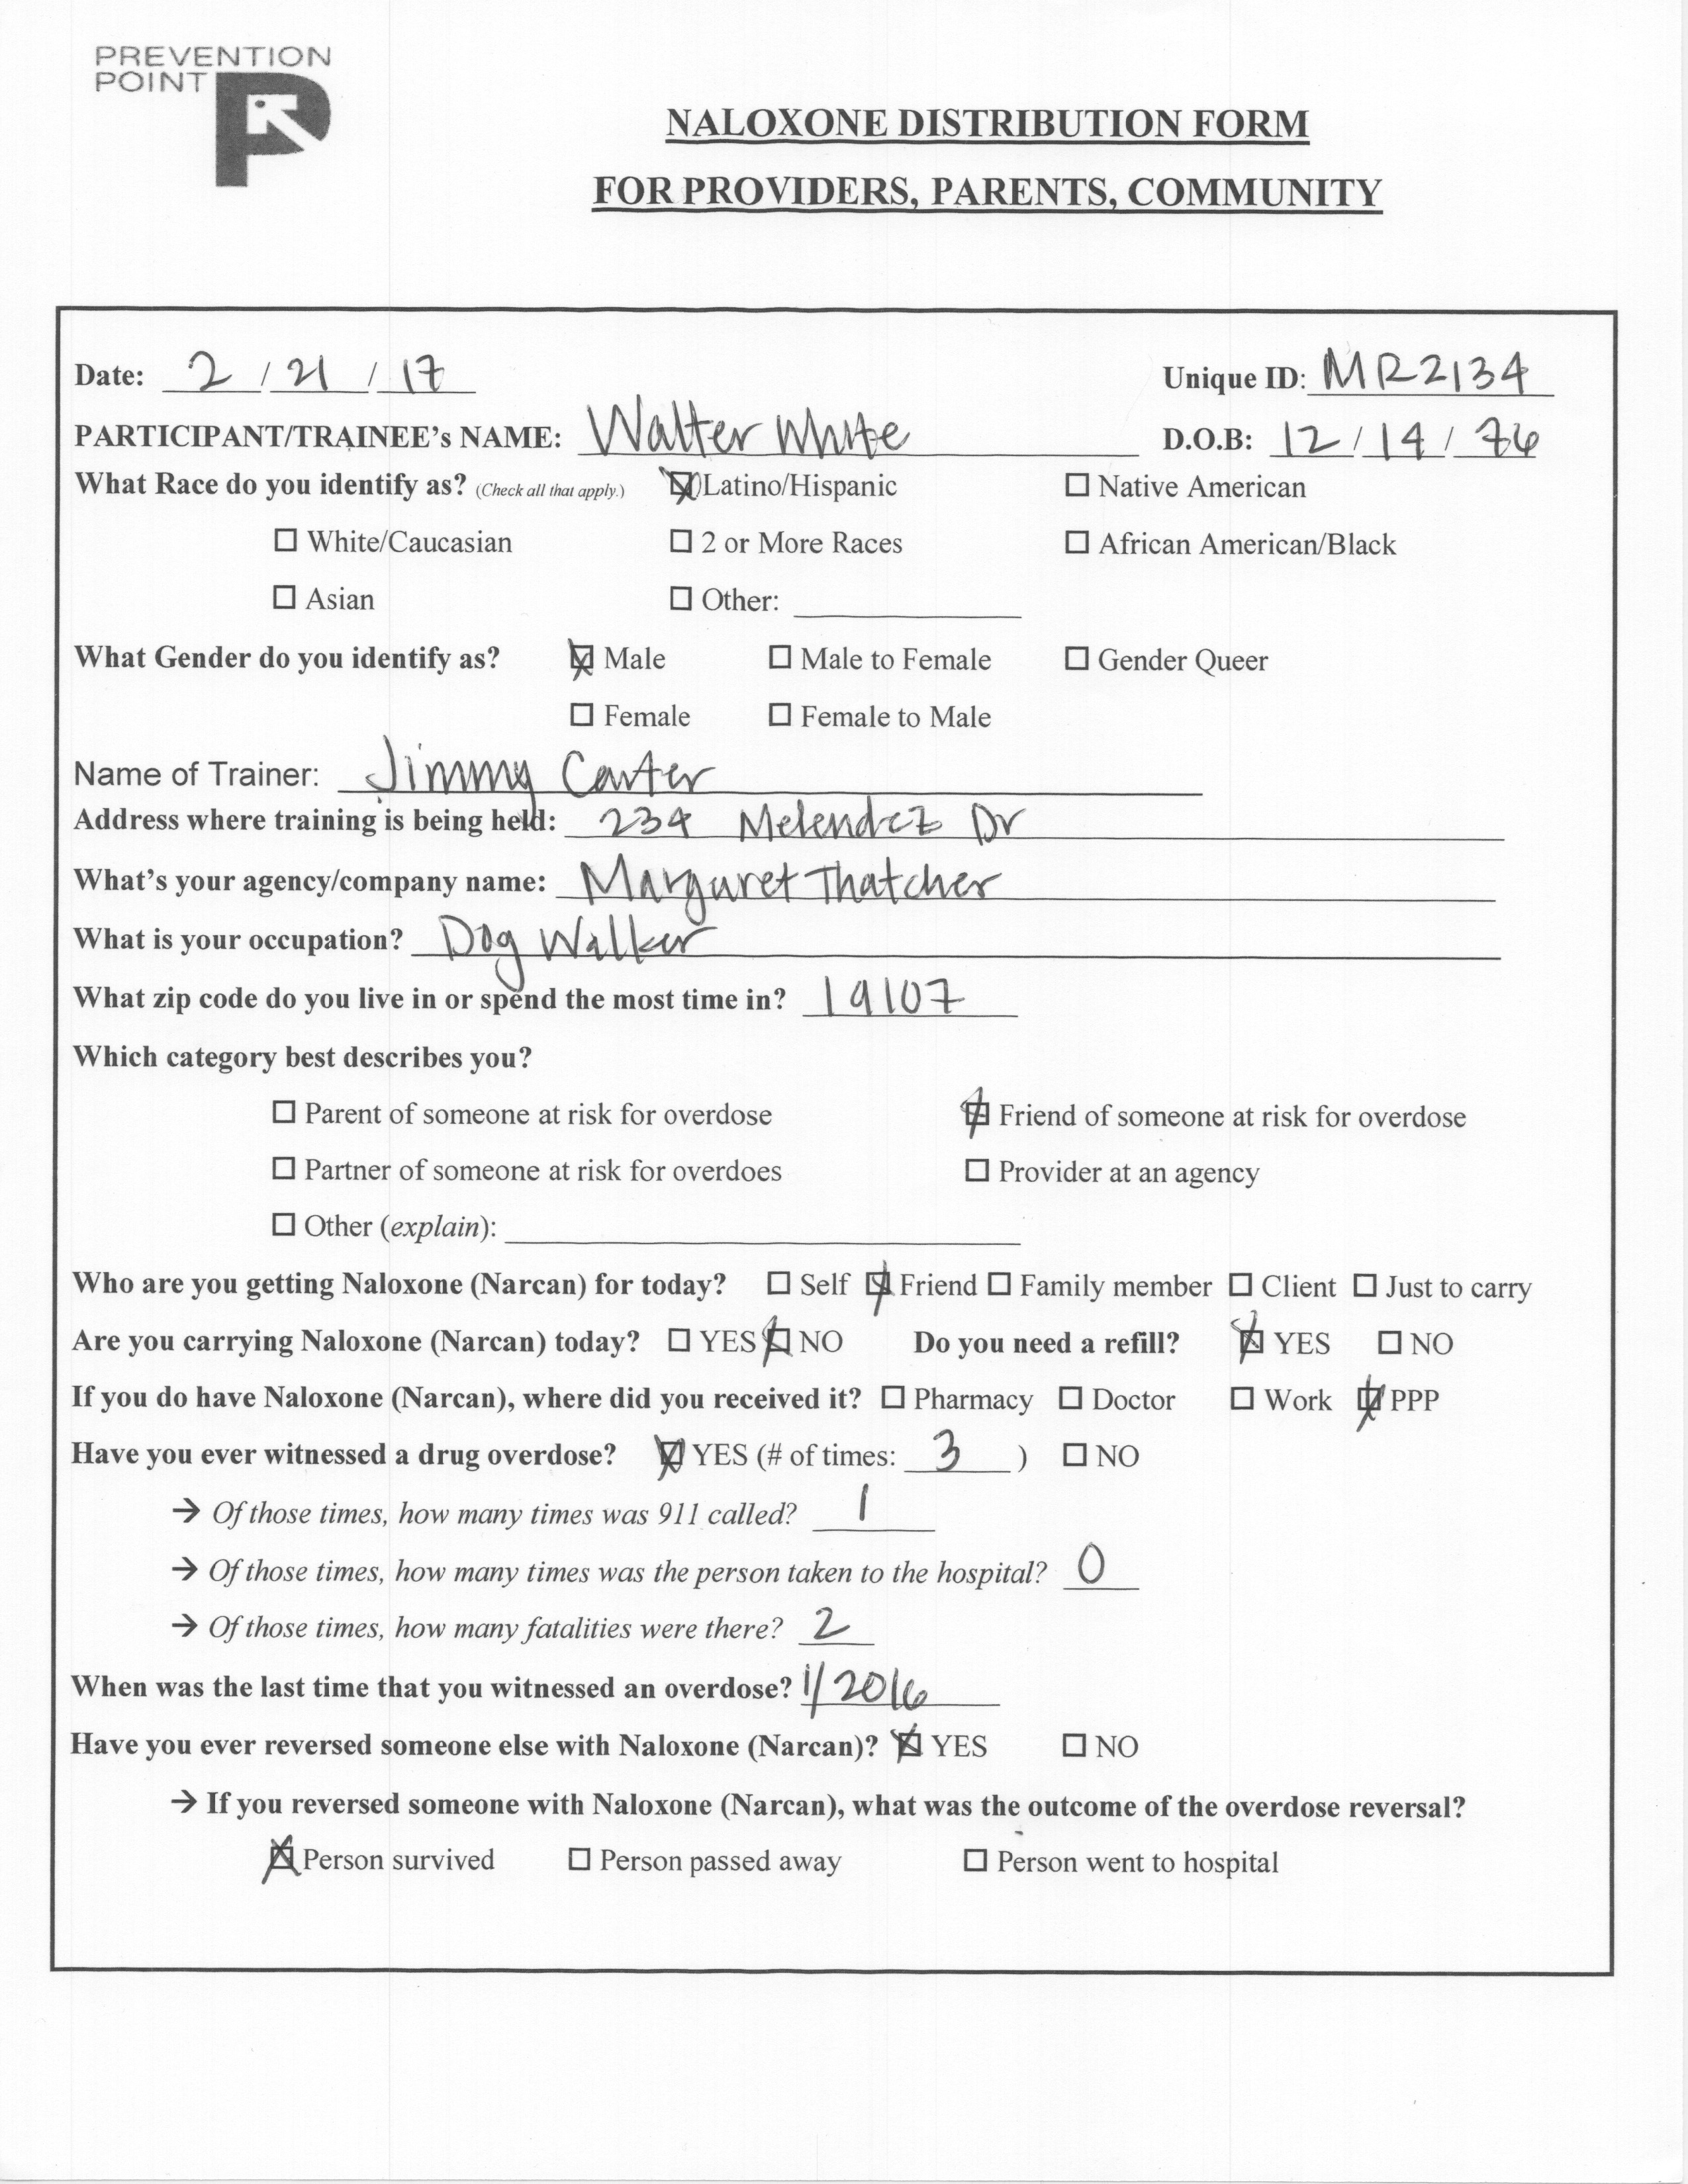 PREVENTION
POINT
NALOXONE DISTRIBUTION FORM
FOR PROVIDERS, PARENTS, COMMUNITY
Date: 2 / 21 / 17 Unique ID: MR2134
PARTICIPANT/TRAINEE's NAME: Walter White D.O.B: 12 / 14 / 76
What Race do you identify as? (Check all that apply.) ☒ Latino/Hispanic ☐ Native American
☐ White/Caucasian ☐ 2 or More Races ☐ African American/Black
☐ Asian ☐ Other:
What Gender do you identify as? ☒ Male ☐ Male to Female ☐ Gender Queer
☐ Female ☐ Female to Male
Name of Trainer: Jimmy Carter
Address where training is being held: 234 Melendez Dr
What's your agency/company name: Margaret Thatcher
What is your occupation? Dog Walker
What zip code do you live in or spend the most time in? 19107
Which category best describes you?
☐ Parent of someone at risk for overdose ☒ Friend of someone at risk for overdose
☐ Partner of someone at risk for overdoes ☐ Provider at an agency
☐ Other (explain):
Who are you getting Naloxone (Narcan) for today? ☐ Self ☒ Friend ☐ Family member ☐ Client ☐ Just to carry
Are you carrying Naloxone (Narcan) today? ☐ YES ☒ NO Do you need a refill? ☒ YES ☐ NO
If you do have Naloxone (Narcan), where did you received it? ☐ Pharmacy ☐ Doctor ☐ Work ☒ PPP
Have you ever witnessed a drug overdose? ☒ YES (# of times: 3 ) ☐ NO
→ Of those times, how many times was 911 called? 1
→ Of those times, how many times was the person taken to the hospital? 0
→ Of those times, how many fatalities were there? 2
When was the last time that you witnessed an overdose? 1/2016
Have you ever reversed someone else with Naloxone (Narcan)? ☒ YES ☐ NO
→ If you reversed someone with Naloxone (Narcan), what was the outcome of the overdose reversal?
☒ Person survived ☐ Person passed away ☐ Person went to hospital